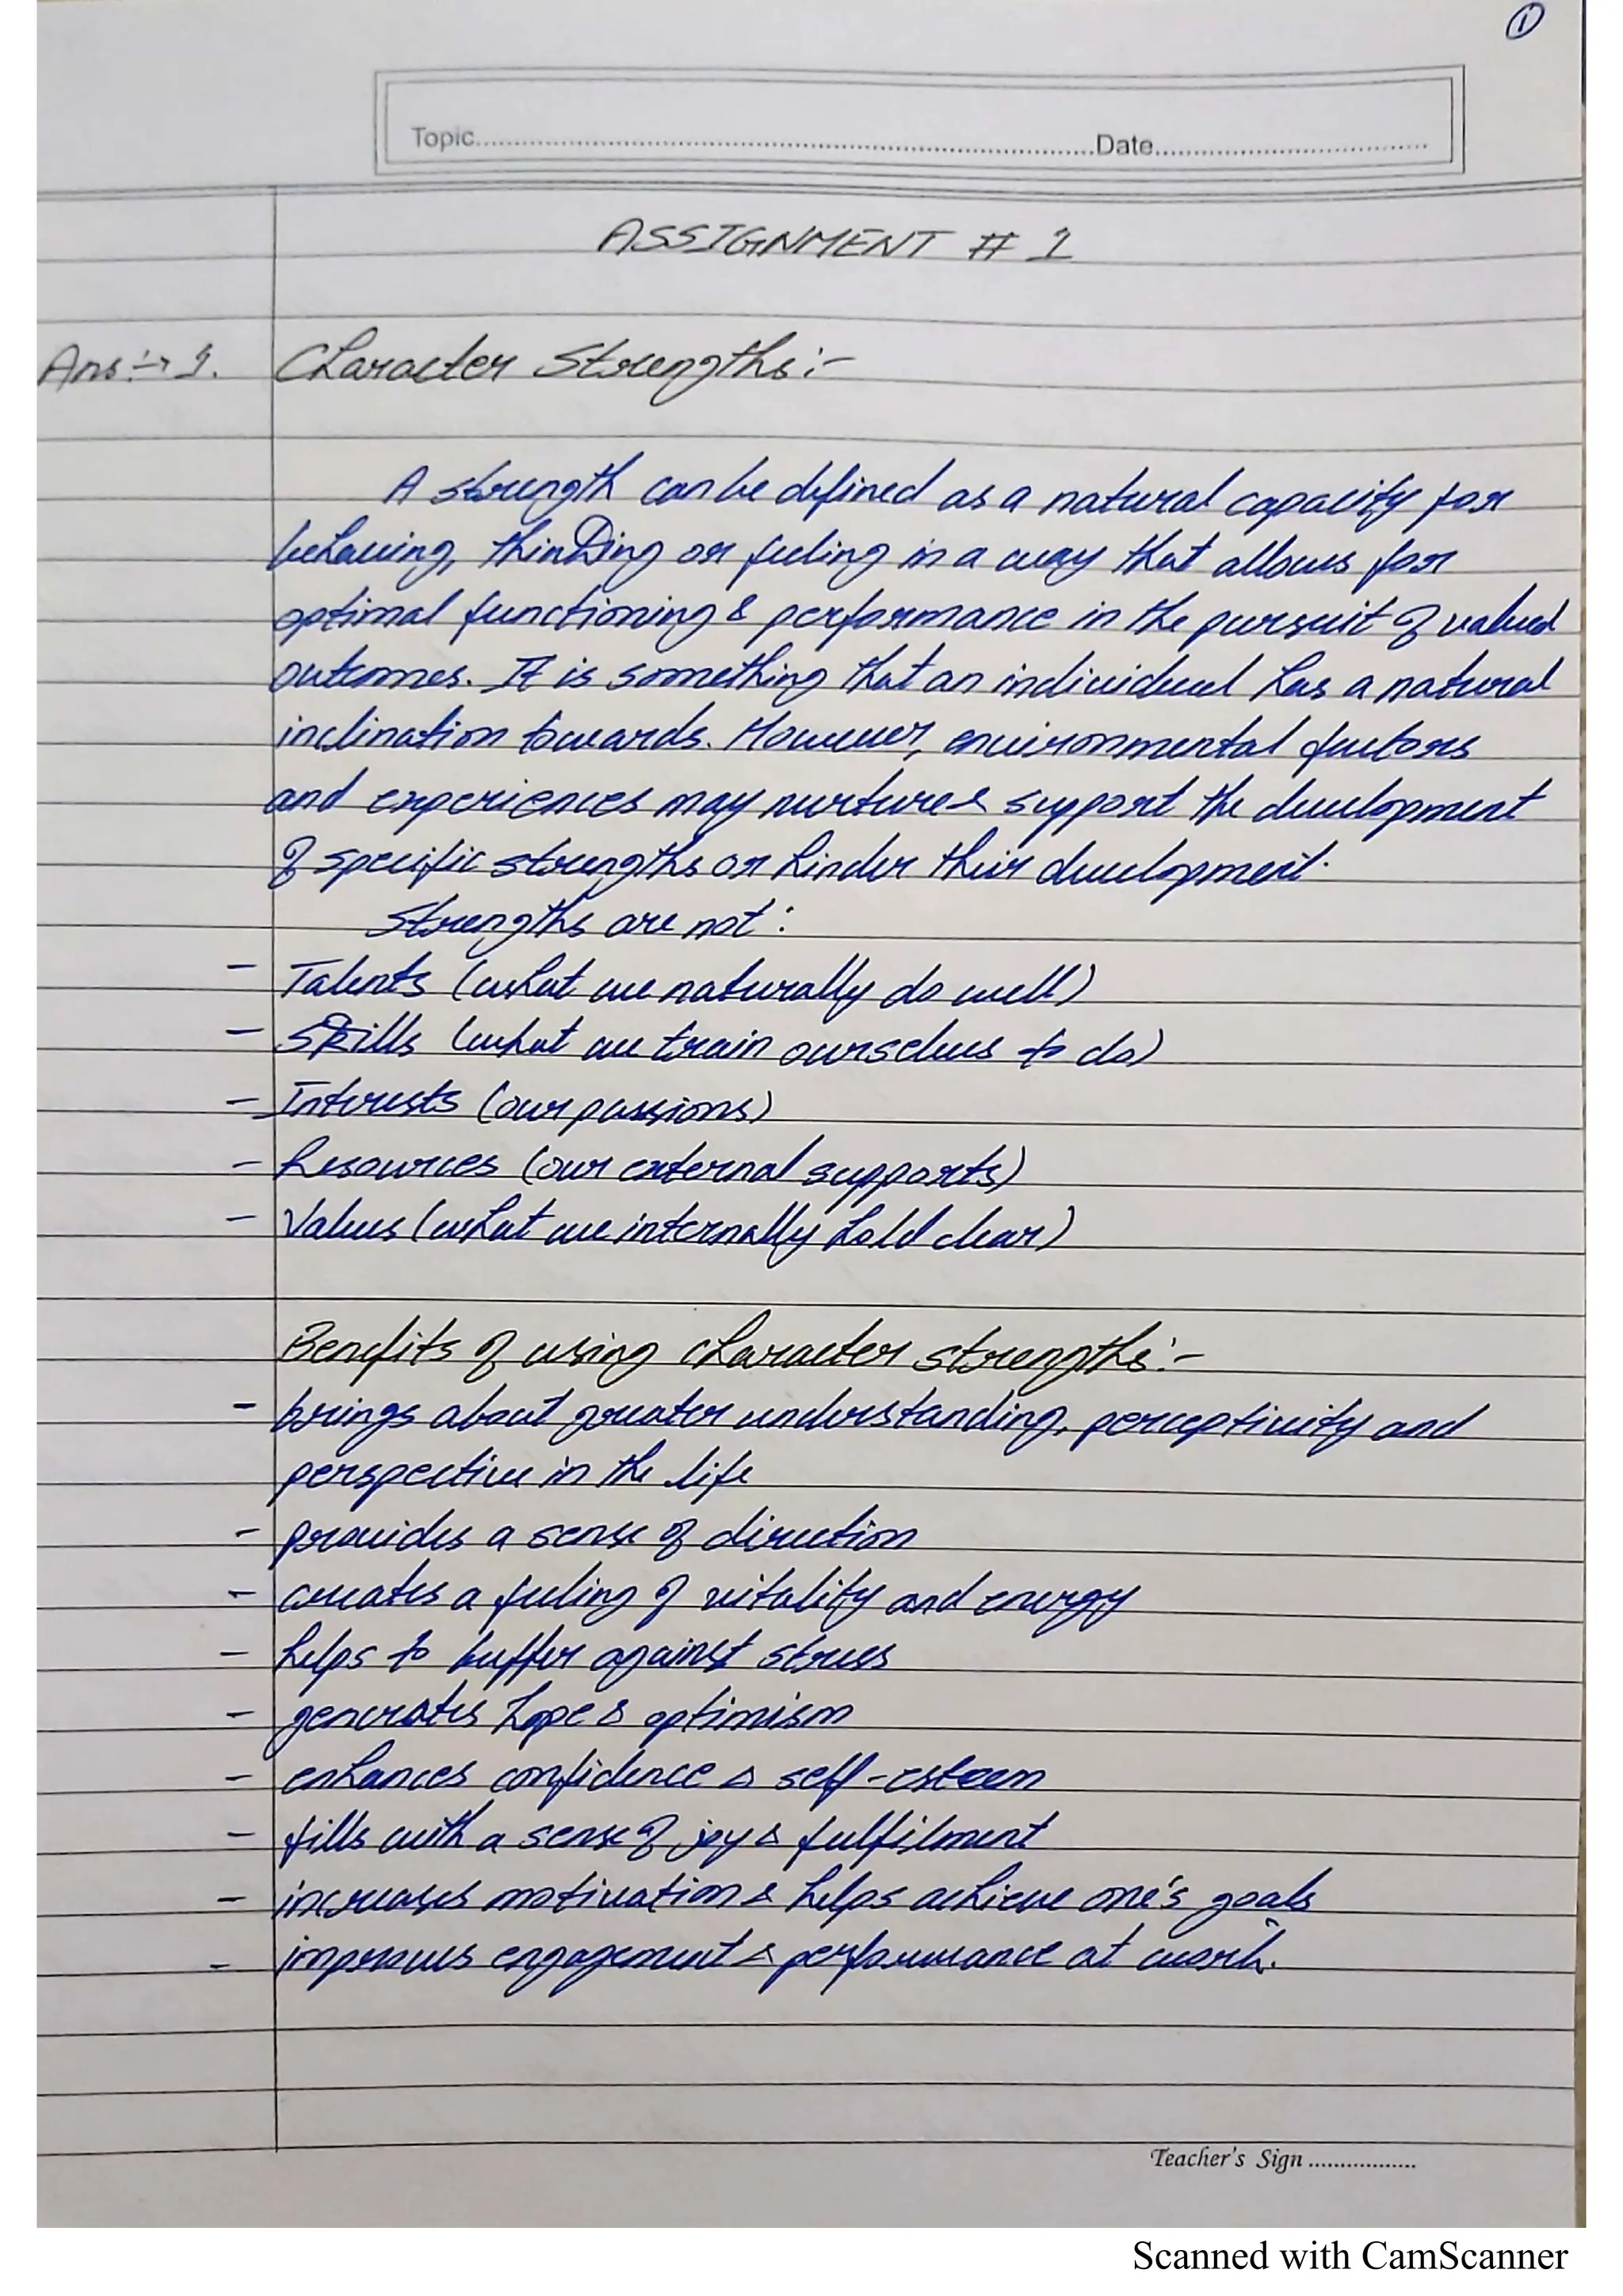 1
Topic..............................Date..............................
ASSIGNMENT # 1
Ans:→ 1. Character Strengths:-
A strength can be defined as a natural capacity for
behaving, thinking or feeling in a way that allows for
optimal functioning & performance in the pursuit of valued
outcomes. It is something that an individual has a natural
inclination towards. However, environmental factors
and experiences may nurture & support the development
of specific strengths or hinder their development.
Strengths are not:
- Talents (what we naturally do well)
- Skills (what we train ourselves to do)
- Interests (our passions)
- Resources (our external supports)
- Values (what we internally hold dear)
Benefits of using character strengths:-
- brings about greater understanding, perceptivity and
perspective in the life
- provides a sense of direction
- creates a feeling of vitality and energy
- helps to buffer against stress
- generates hope & optimism
- enhances confidence & self-esteem
- fills with a sense of joy & fulfilment
- increases motivation & helps achieve one's goals
- improves engagement & performance at work.
Teacher's Sign ..................
Scanned with CamScanner